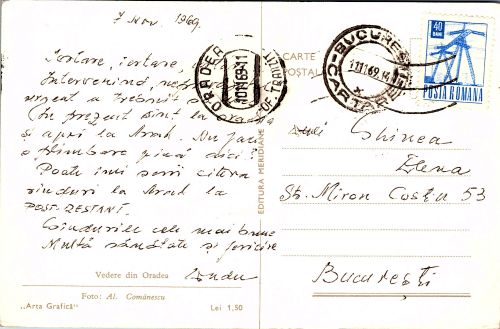 7 Nov. 1969
Iertare, iertare,
Intervenind,
urgent a trebuit
În prezent sînt la Oradea
și apoi la Arad. Nu
o plimbare pînă aici?
Poate îmi scrii cîteva
rînduri la Arad la
POST-RESTANT.
Gîndurile cele mai bune
Multă sănătate și fericire
Vedere din Oradea
Foto: Al. Comănescu
„Arta Grafică"
Lei 1,50
EDITURA MERIDIANE
CARTE
POȘTALĂ
ORADEA
10.11.69.11
OF. TRANZIT
BUCUREȘTI
11.11.69.
CARTARE
40
BANI
POSTA ROMANA
Ghinea
Elena
Str. Miron Costin 53
București